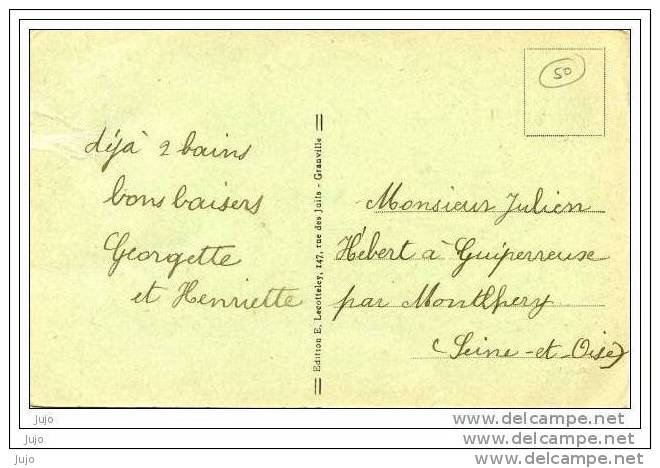 50
déjà 2 bains
bons baisers
Georgette
et Henriette
Edition E. Lecotteley, 147, rue des Juifs - Granville
Monsieur Julien
Hébert à Guiperreuse
par Montlhery
(Seine-et-Oise)
Jujo
www.delcampe.net
Jujo
www.delcampe.net
Jujo
www.delcampe.net